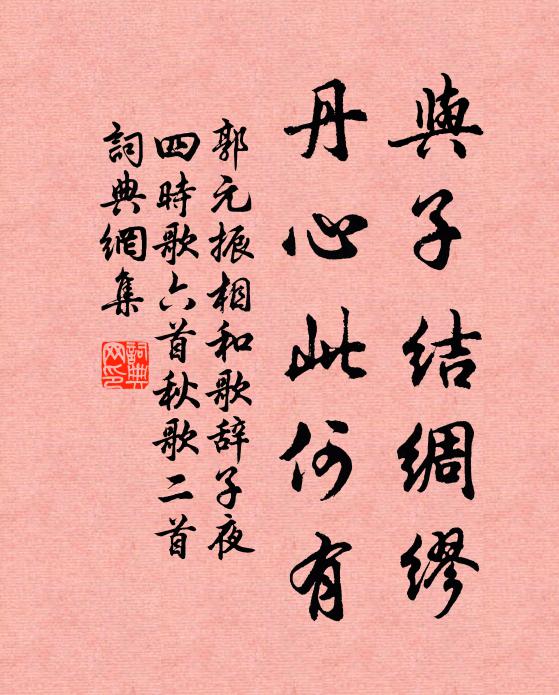 與子結綢繆
丹心此何有
郭元振相和歌辞子夜
四時歌六首秋歌二首
詞典網集
詞典網印